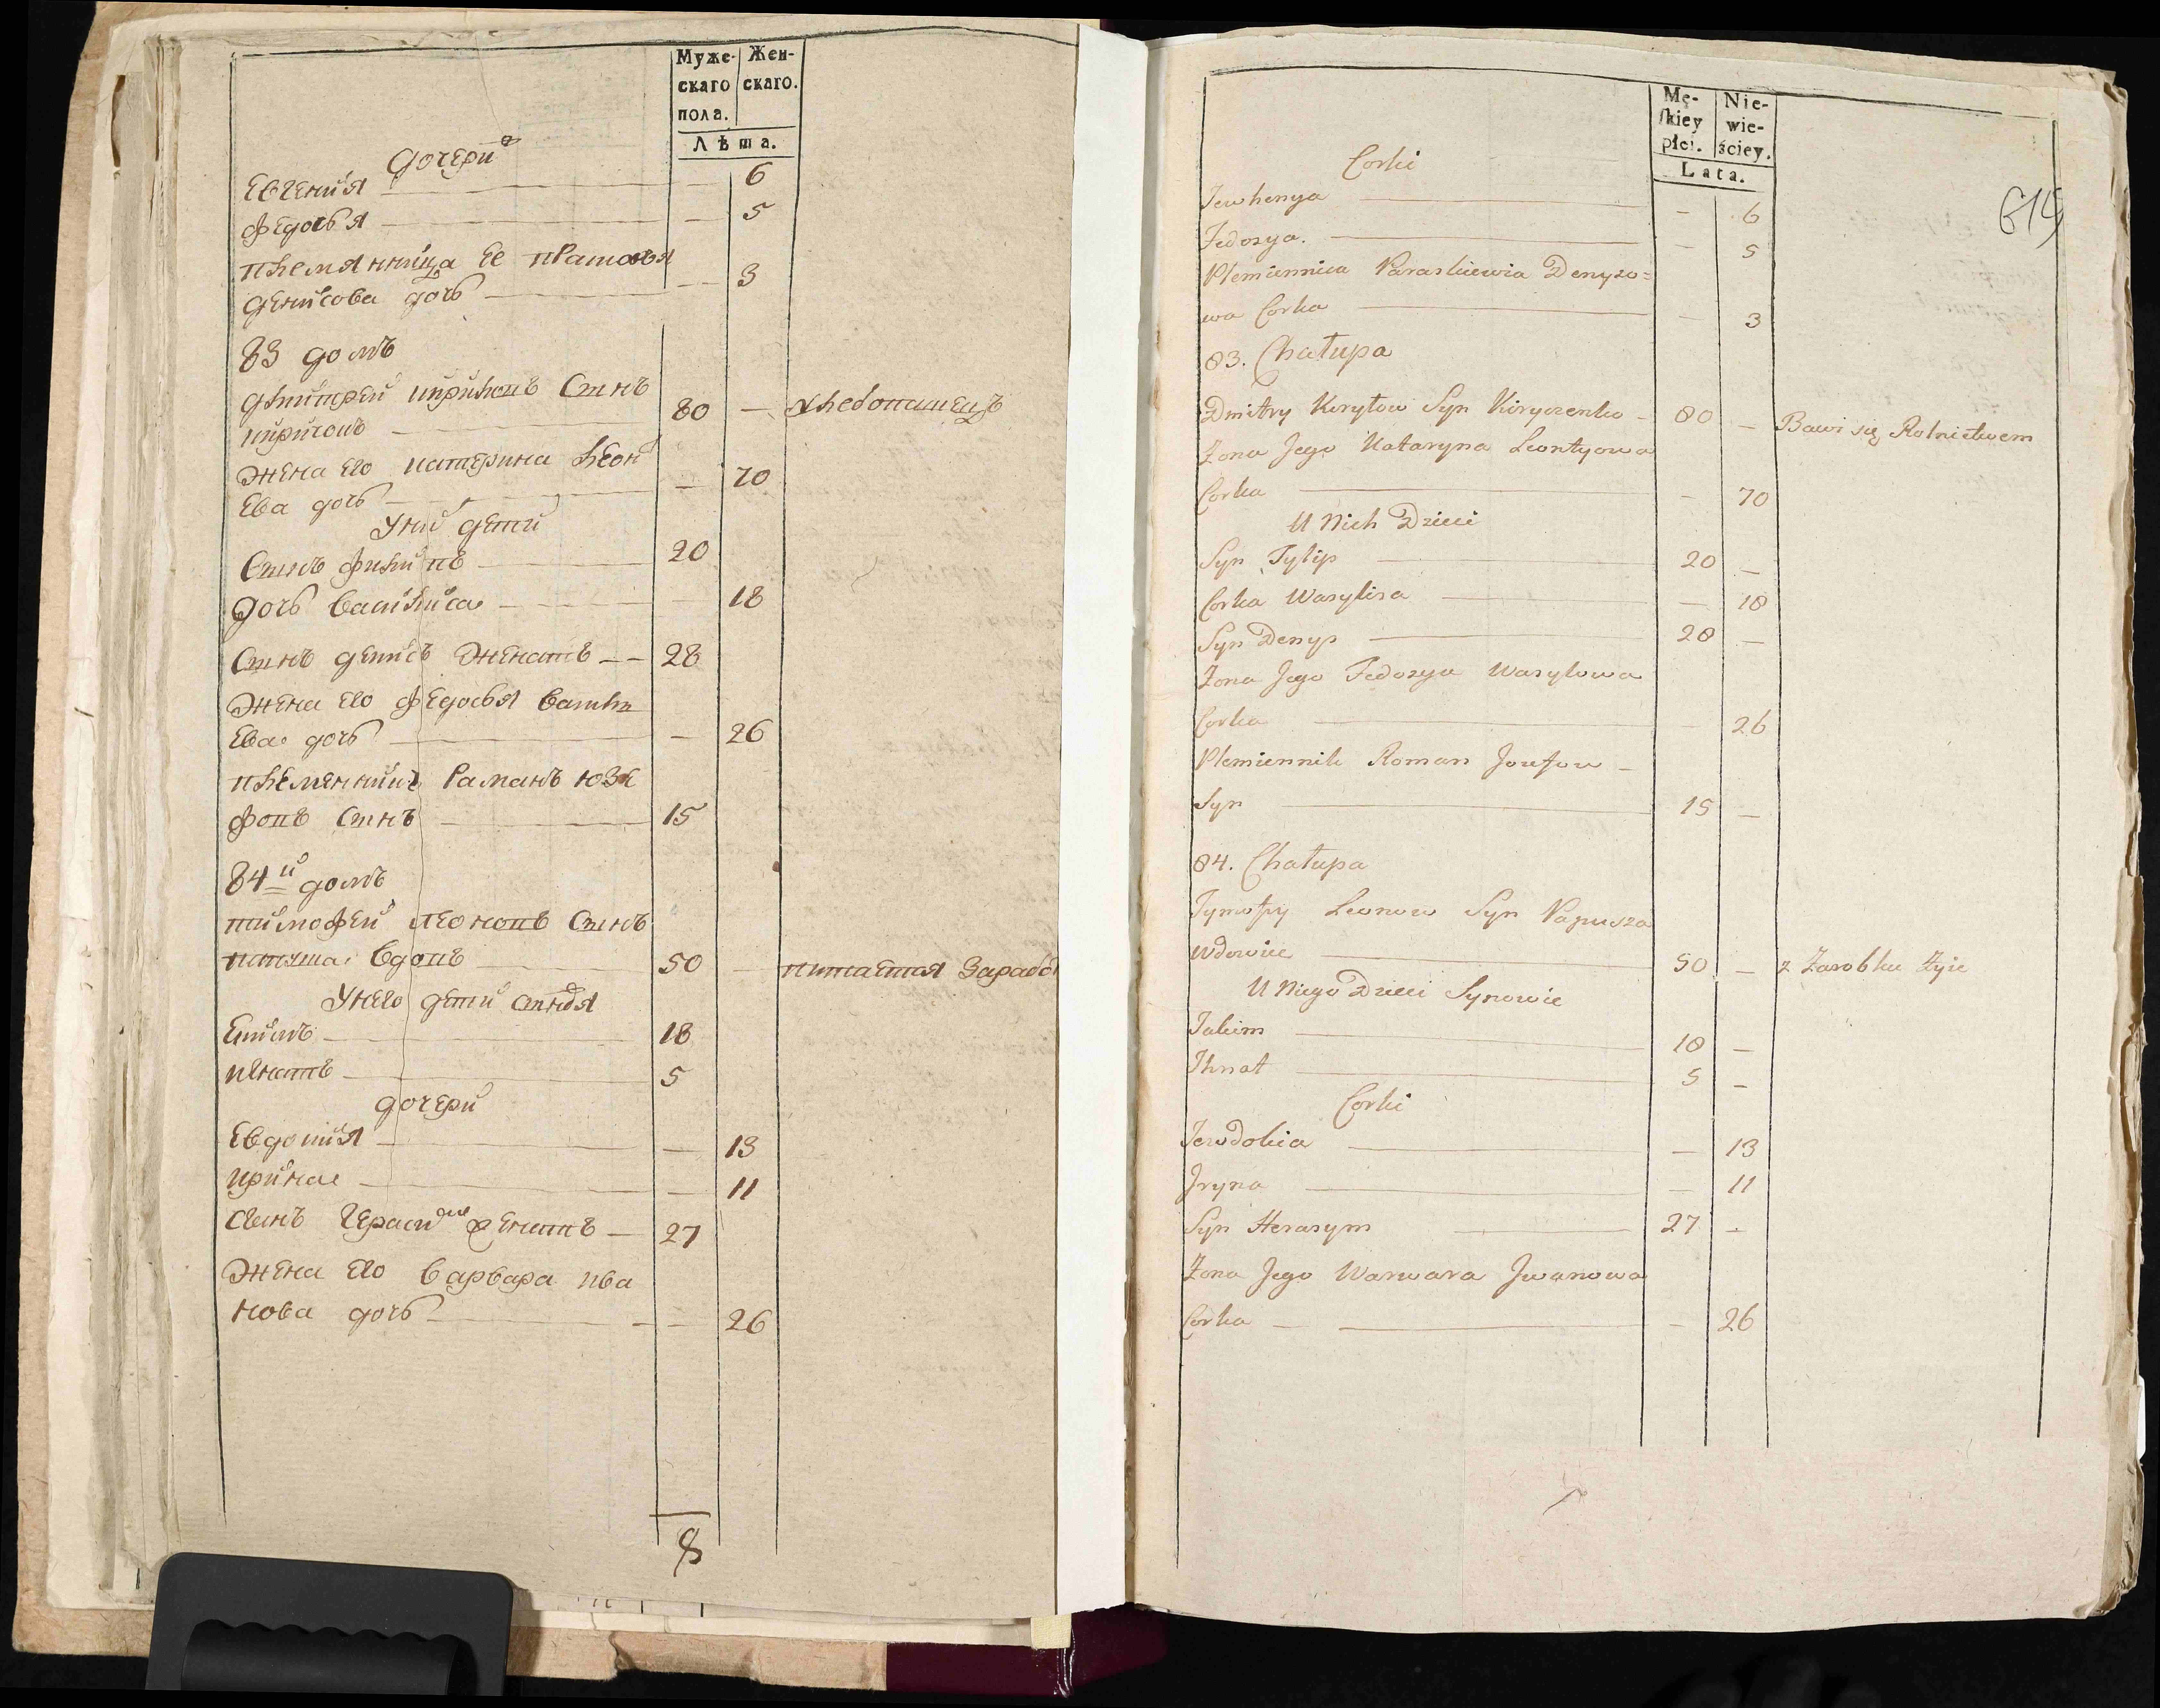 Муже-
скаго
пола.
Жен-
скаго.
Лѣта.
дочери
Евгения — 6
Федосья — 5
племянница ее
денисова дочь — 3
83 домъ
дмитрей кирилов Сынъ
80 — хлебопашецъ
жена его катерина леонт
ева дочь — 70
У них дети
Сынъ филипъ — 20
дочь василиса — 18
Сынъ денисъ женатъ — 28
жена его федосья василь
ева дочь — 26
племенникъ Раманъ юзе
фовъ Сынъ — 15
84й домъ
тимофей леоновъ Сынъ
папуша вдовъ — 50 — питается Зарабо
У него дети сыновья
Екимъ — 18
игнатъ — 5
дочери
Евдокия — 13
ирина — 11
сынъ герасим женатъ — 27
жена его варвара ива
нова дочь — 26
8
Mę-
ſkiey
płci.
Nie-
wie-
ściey.
Lata.
614
Corki
Jewhenya — 6
Fedosya. — 5
Plemiennica Paraskiewia Denyso=
wa Corka — 3
83. Chałupa
Dmitry Kyryłow Syn Kiryczenko — 80 — Bawi się Rolnictwem
Żona Jego Kataryna Leontyowa
Corka — 70
U Nich Dzieci
Syn Fylip — 20 —
Corka Wasylisa — 18
Syn Denys — 28 —
Żona Jego Fedosya Wasylowa
Corka — 26
Plemiennik Roman Jozefow —
Syn — 15 —
84. Chałupa
Tymofiy Leonow Syn Papusza
Wdowiec — 50 — z Zarobku żyie
U Niego Dzieci Synowie
Jakim — 18 —
Ihnat — 5 —
Corki
Jewdokia — 13
Jryna — 11
Syn Herasym — 27 -
Żona Jego Warwara Jwanowa
Corka — 26